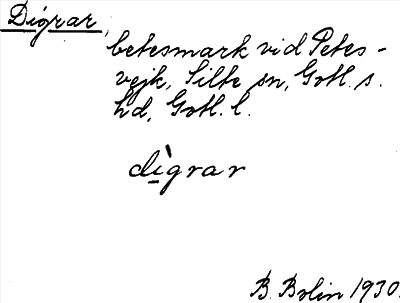 Digrar,
betesmark vid Petes-
vejk, Silte sn, Gotl. s.
hd, Gotl. l.
dìgrar
B. Bolin 1930.